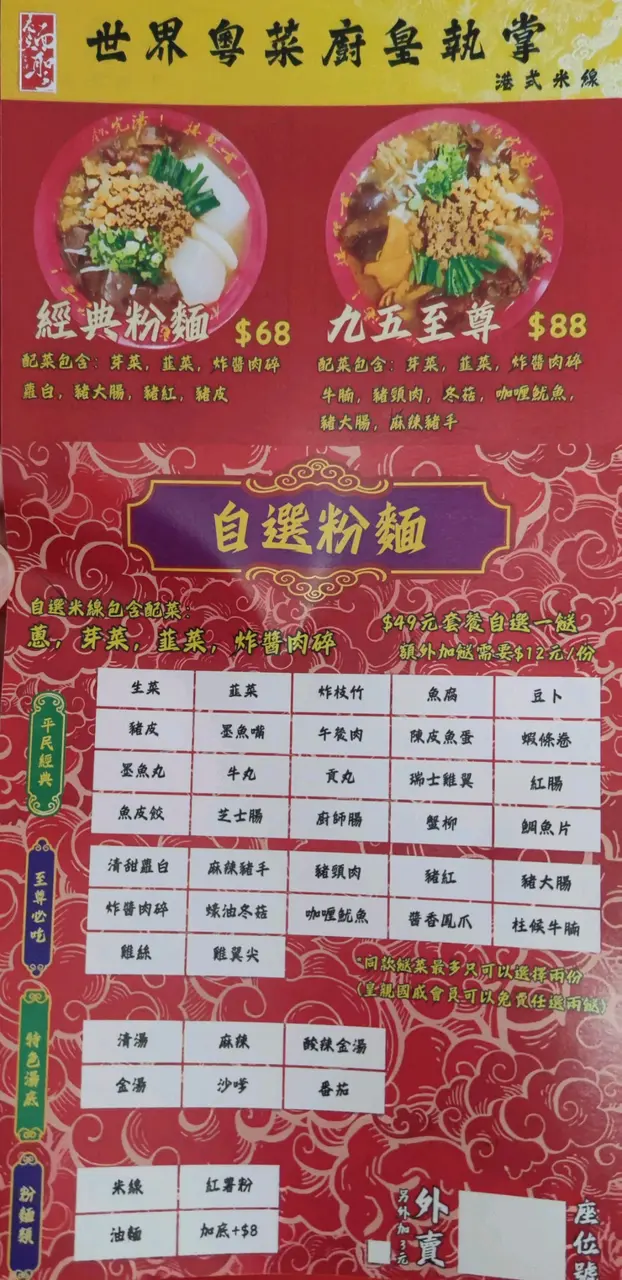 世界粵菜廚皇執掌
港式米線
經典粉麵 $68
配菜包含：芽菜，韮菜，炸醬肉碎
蘿白，豬大腸，豬紅，豬皮
九五至尊 $88
配菜包含：芽菜，韮菜，炸醬肉碎
牛腩，豬頸肉，冬菇，咖喱魷魚，
豬大腸，麻辣豬手
自選粉麵
自選米線包含配菜：
蔥，芽菜，韮菜，炸醬肉碎
$49元套餐自選一餸
額外加餸需要$12元/份
平民經典
生菜 韮菜 炸枝竹 魚腐 豆卜
豬皮 墨魚嘴 午餐肉 陳皮魚蛋 蝦條卷
墨魚丸 牛丸 貢丸 瑞士雞翼 紅腸
魚皮餃 芝士腸 廚師腸 蟹柳 鯛魚片
至尊必吃
清甜蘿白 麻辣豬手 豬頸肉 豬紅 豬大腸
炸醬肉碎 蠔油冬菇 咖喱魷魚 醬香鳳爪 柱候牛腩
雞絲 雞翼尖
*同款餸菜最多只可以選擇兩份
(皇親國戚會員可以免費任選兩餸)
特色湯底
清湯 麻辣 酸辣金湯
金湯 沙嗲 番茄
粉麵類
米線 紅薯粉
油麵 加底+$8
外賣
另外加3元
座位號